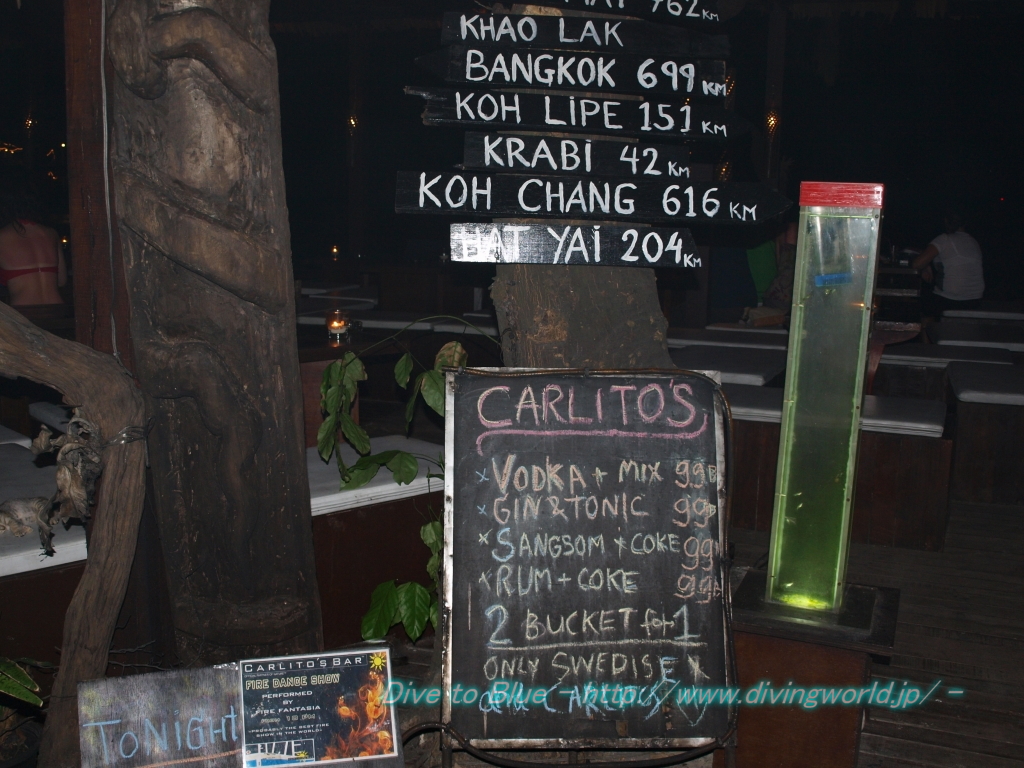 762 KM
KHAO LAK
BANGKOK 699 KM
KOH LIPE 151 KM
KRABI 42 KM
KOH CHANG 616 KM
HAT YAI 204 KM
CARLITO'S
x VODKA + MIX 99฿
x GIN & TONIC 99฿
x SANGSOM + COKE 99฿
x RUM + COKE 99฿
2 BUCKET for 1
ONLY SWEDISF X
CARLITO'S BAR
FIRE DANCE SHOW
PERFORMED
BY
FIRE FANTASIA
(PROBABLY THE BEST FIRE
SHOW IN THE WORLD)
TONIGHT
Dive to Blue - http://www.divingworld.jp/ -